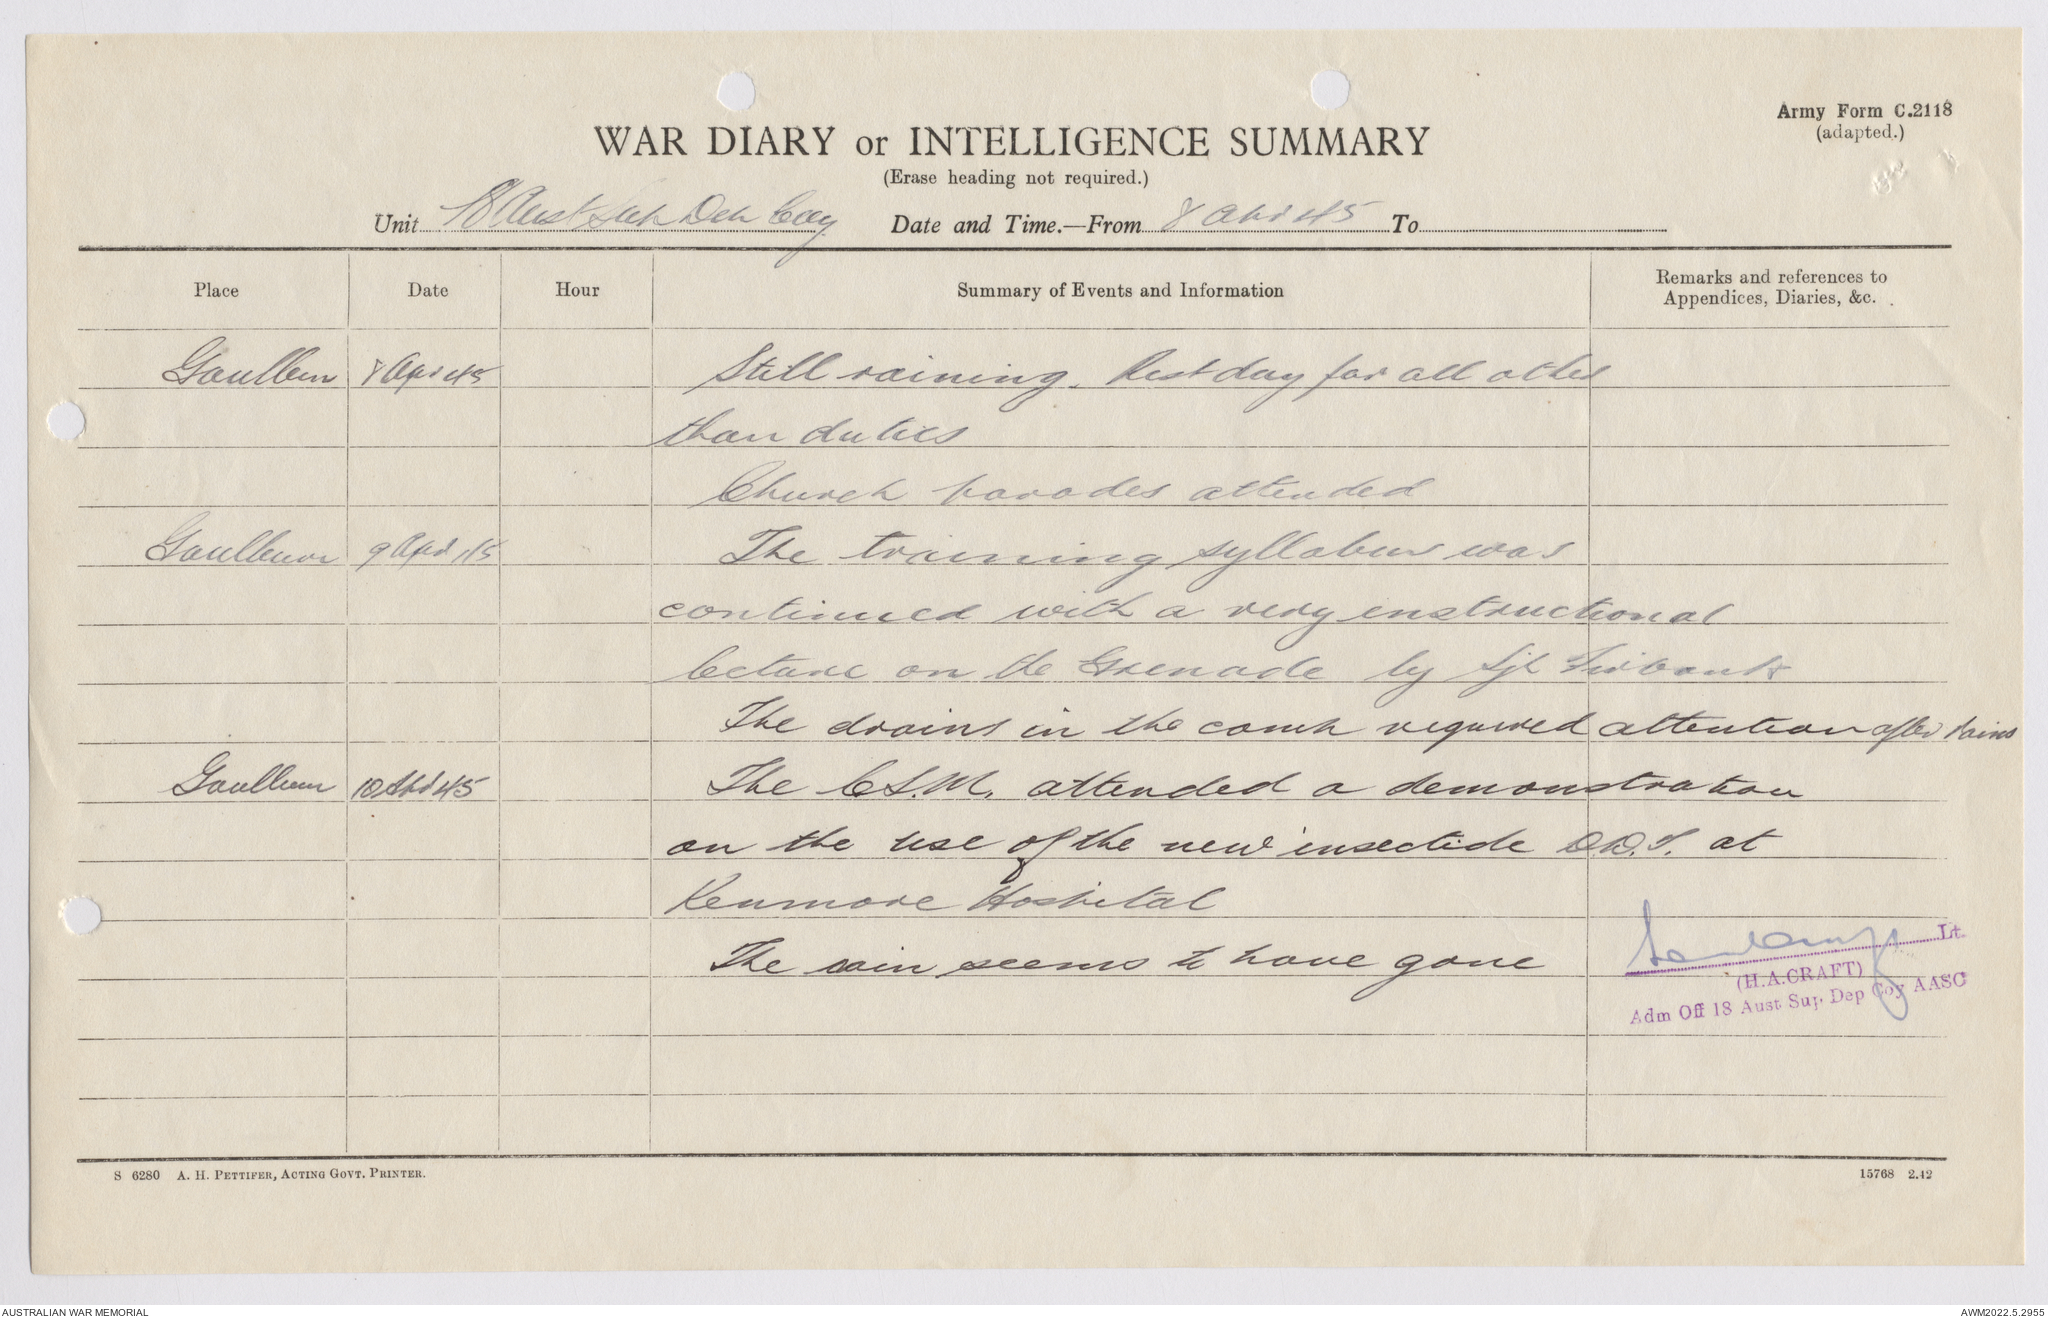 Army Form C.2118
(adapted.)
WAR DIARY or INTELLIGENCE SUMMARY
(Erase heading not required.)
Unit 18 Aust Sup Dep Coy Date and Time.—From 8 Apr 45 To
Place Date Hour Summary of Events and Information Remarks and references to
Appendices, Diaries, &c.
Goulburn 8 Apr 45 Still raining. Rest day for all other
than duties
Church parades attended
Goulburn 9 Apr 45 The training syllabus was
continued with a very instructional
lecture on the Grenade by Sjt Firbank
The drains in the camp required attention after rains
Goulburn 10 Apr 45 The C.S.M. attended a demonstration
on the use of the new insectide D.D.T. at
Kenmore Hospital
The rain seems to have gone
Lt.
(H.A.CRAFT)
Adm Off 18 Aust Sup Dep Coy AASC
S 6280 A. H. PETTIFER, ACTING GOVT. PRINTER.
15768 2.42
AUSTRALIAN WAR MEMORIAL
AWM2022.5.2955